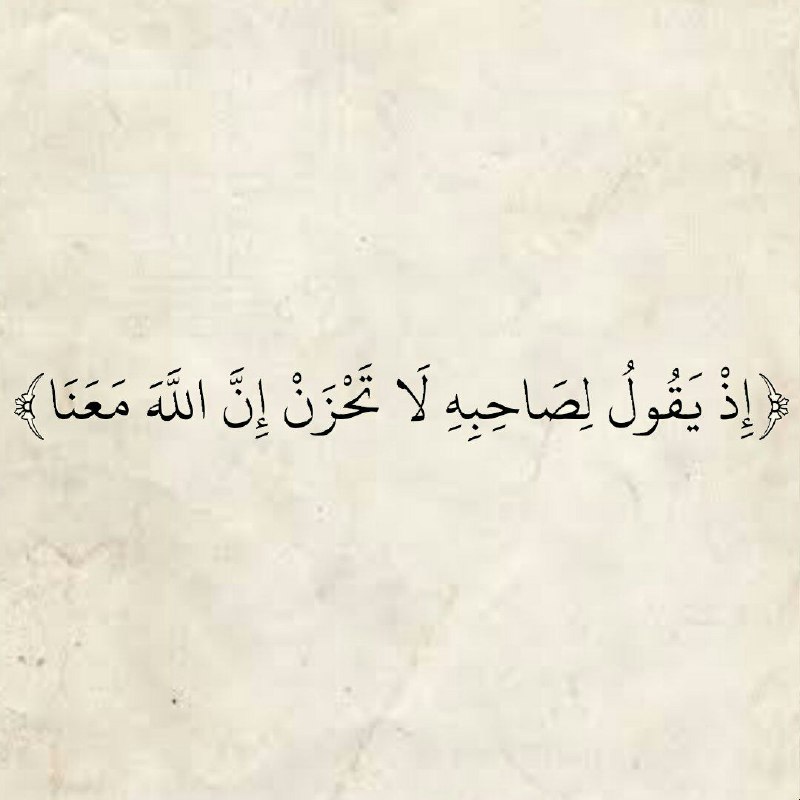 ﴿إِذْ يَقُولُ لِصَاحِبِهِ لَا تَحْزَنْ إِنَّ اللَّهَ مَعَنَا﴾